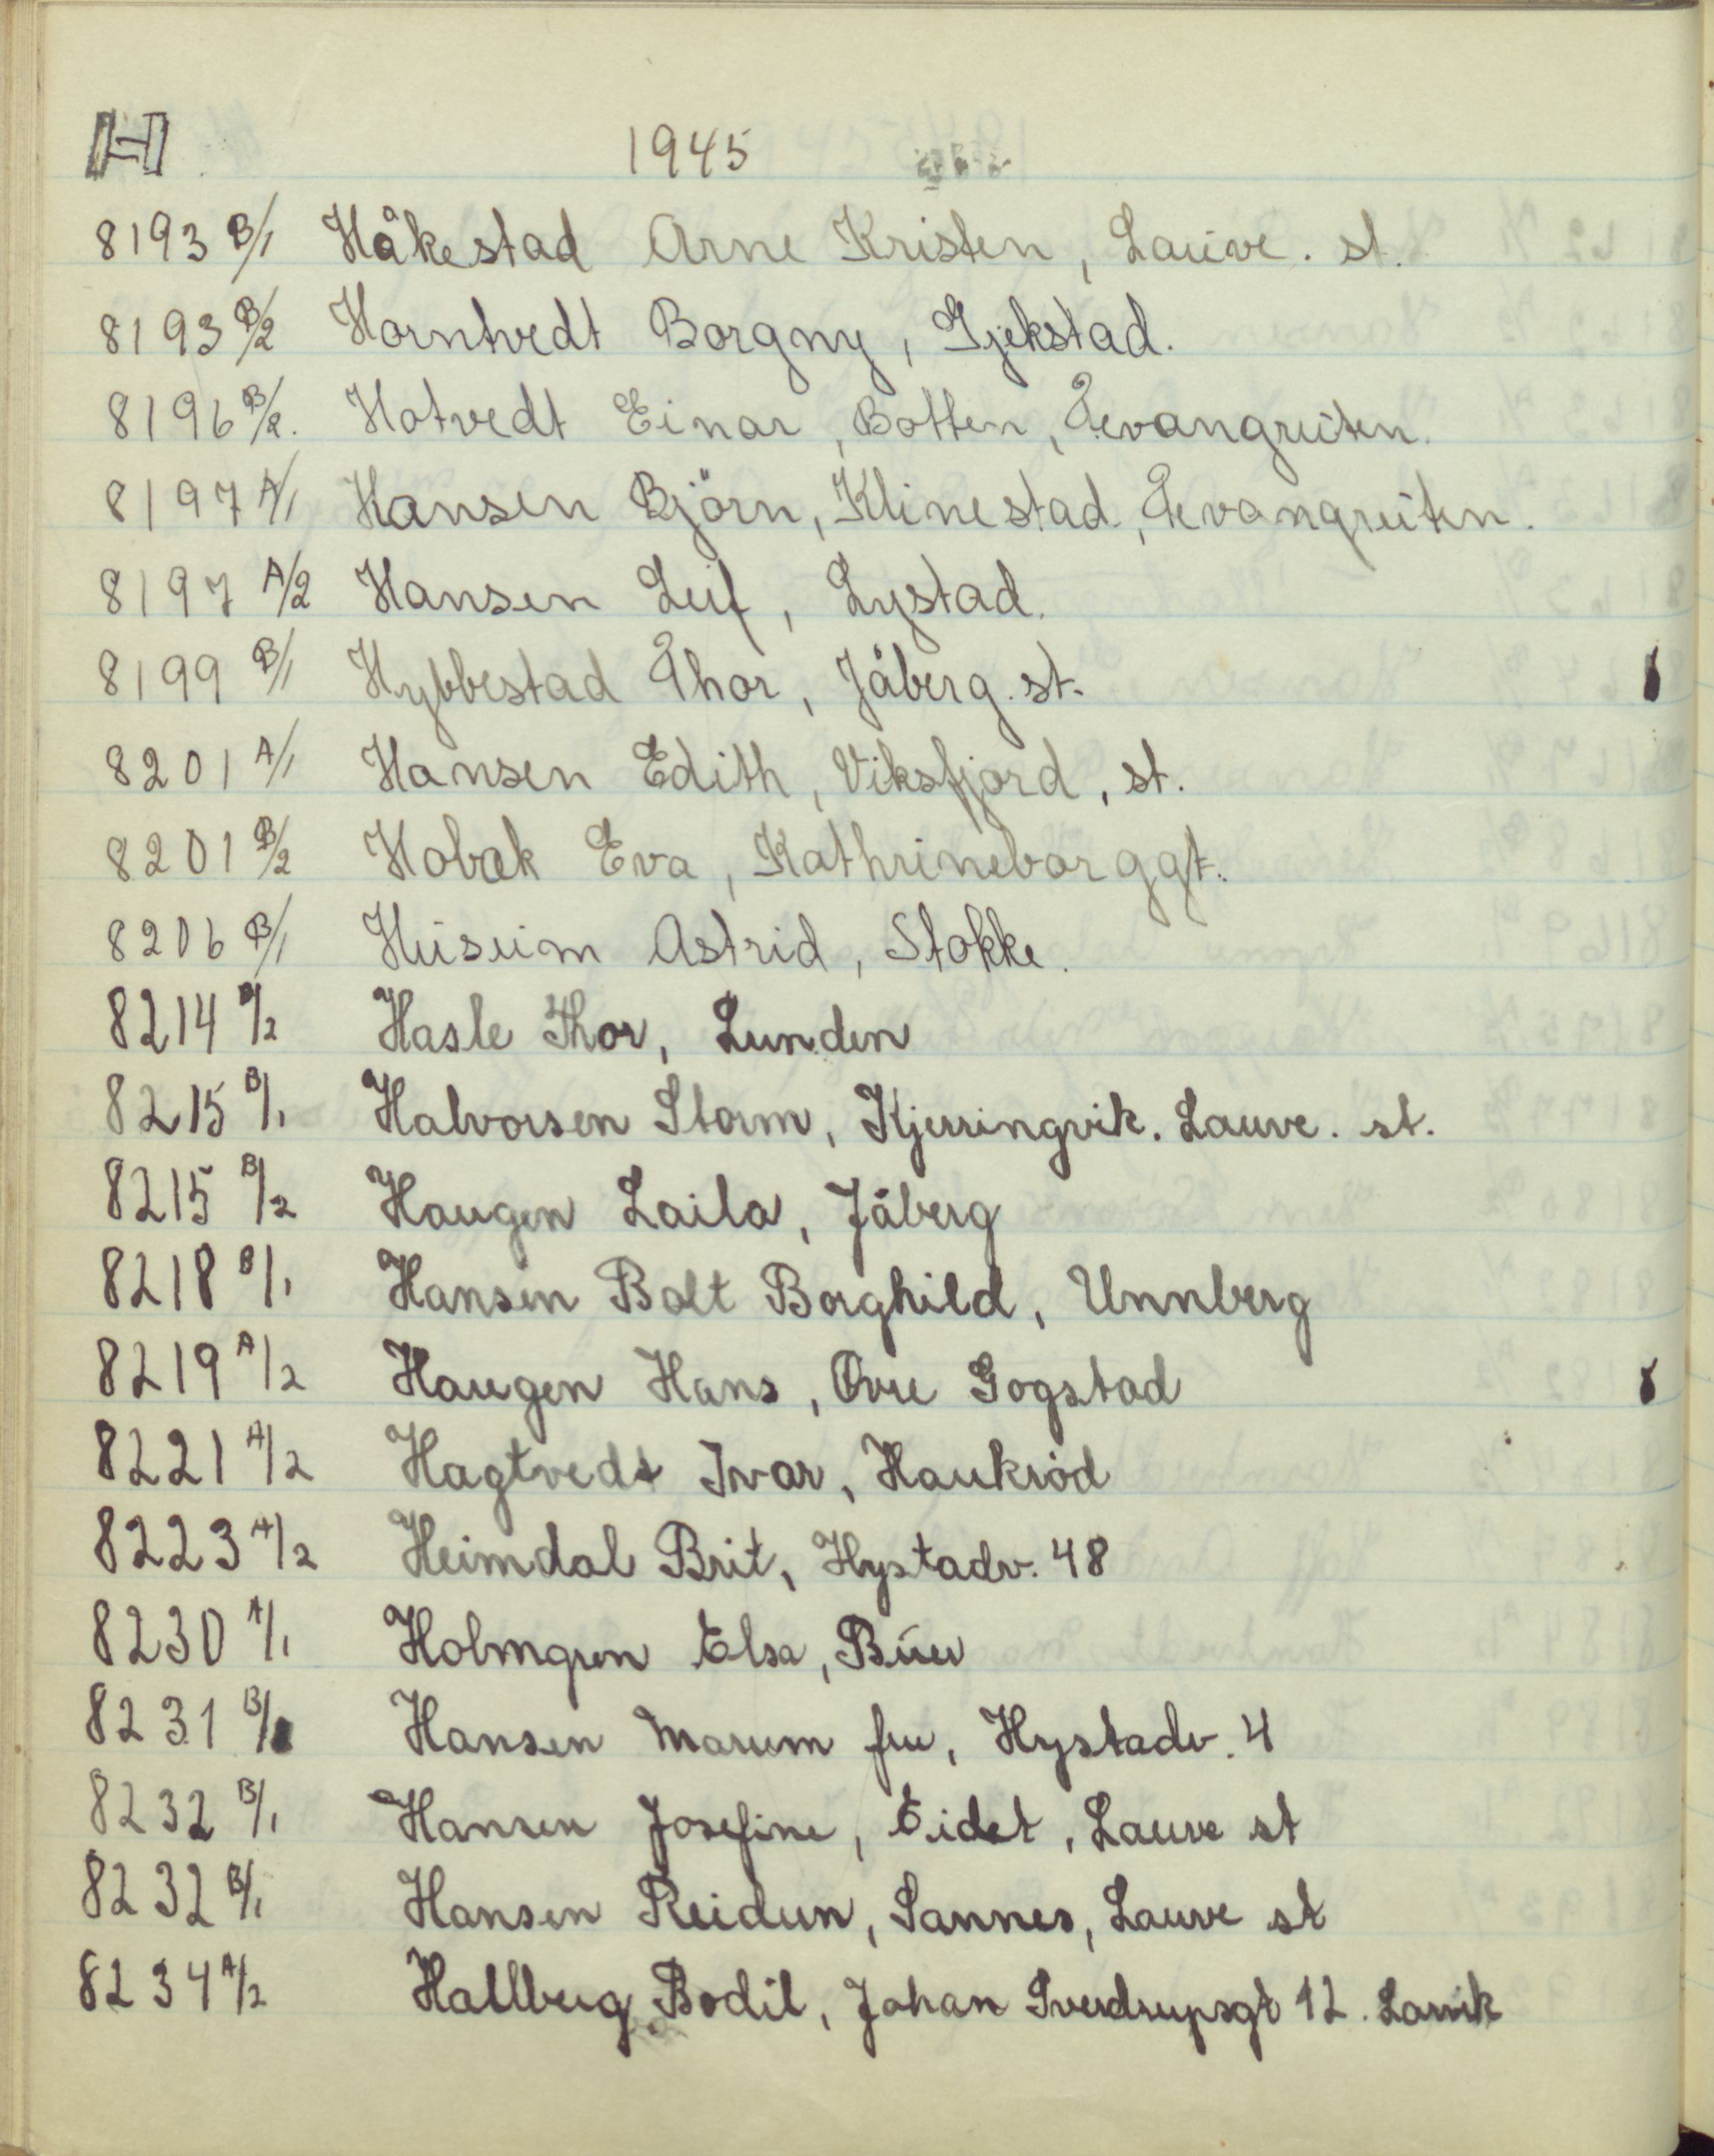 H 1945
8193 B/1 Håkestad Arne Kristen, Lauve. st.
8193 B/2 Horntvedt Borgny, Gjekstad.
8196 B/2. Hotvedt Einar, Botten, Tevangruten.
8197 A/1 Hansen Björn, Klinestad, Tevangruten.
8197 A/2 Hansen Leif, Lystad.
8199 B/1 Hybbestad Thor, Jåberg. st.
8201 A/1 Hansen Edith, Viksfjord, st.
8201 B/2 Hobæk Eva, Kathrineborggt.
8206 B/1 Husum Astrid, Stokke.
8214 B/2 Hasle Thor, Lunden
8215 B/1 Halvorsen Storm, Kjerringvik. Lauve. st.
8215 B/2 Haugen Laila, Jåberg
8218 B/1 Hansen Bolt Borghild, Unnberg
8219 A/2 Haugen Hans, Øvre Gogstad
8221 A/2 Hagtvedt Ivar, Haukrød
8223 A/2 Heimdal Brit, Hystadv. 48
8230 A/1 Holmgren Elsa, Buer
8231 B/ Hansen Marum fru, Hystadv. 4
8232 B/1 Hansen Josefine, Eidet, Lauve st
8232 B/1 Hansen Reidun, Sannes, Lauve st
8234 A/2 Hallberg Bodil, Johan Sverdrupsgt 12. Larvik